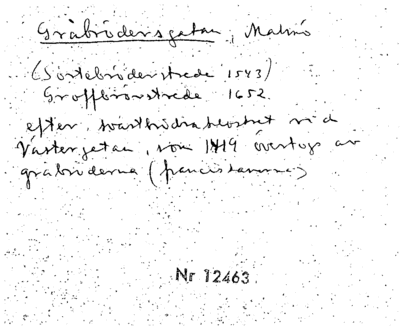 Gråbrödersgatan, Malmö
(Sortebröderstrede 1543)
Groffbrörstrede 1652
efter svartbrödraklostret vid
Västergatan, som 1419 övertogs av
gråbröderna (franciskanerna)
Nr 12463